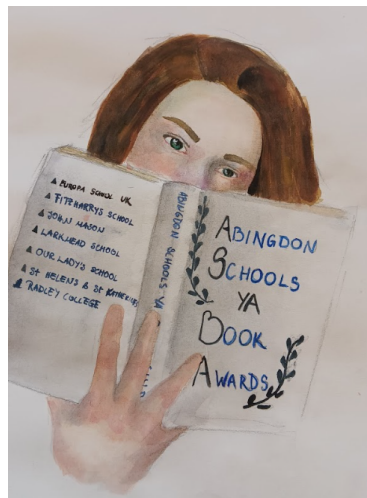 EUROPA SCHOOL UK
FITZHARRYS SCHOOL
JOHN MASON
LARKMEAD SCHOOL
OUR LADY'S SCHOOL
ST HELENS & ST KATHERINES
RADLEY COLLEGE
ABINGDON SCHOOLS YA
ABINGDON
SCHOOLS
YA
BOOK
AWARDS